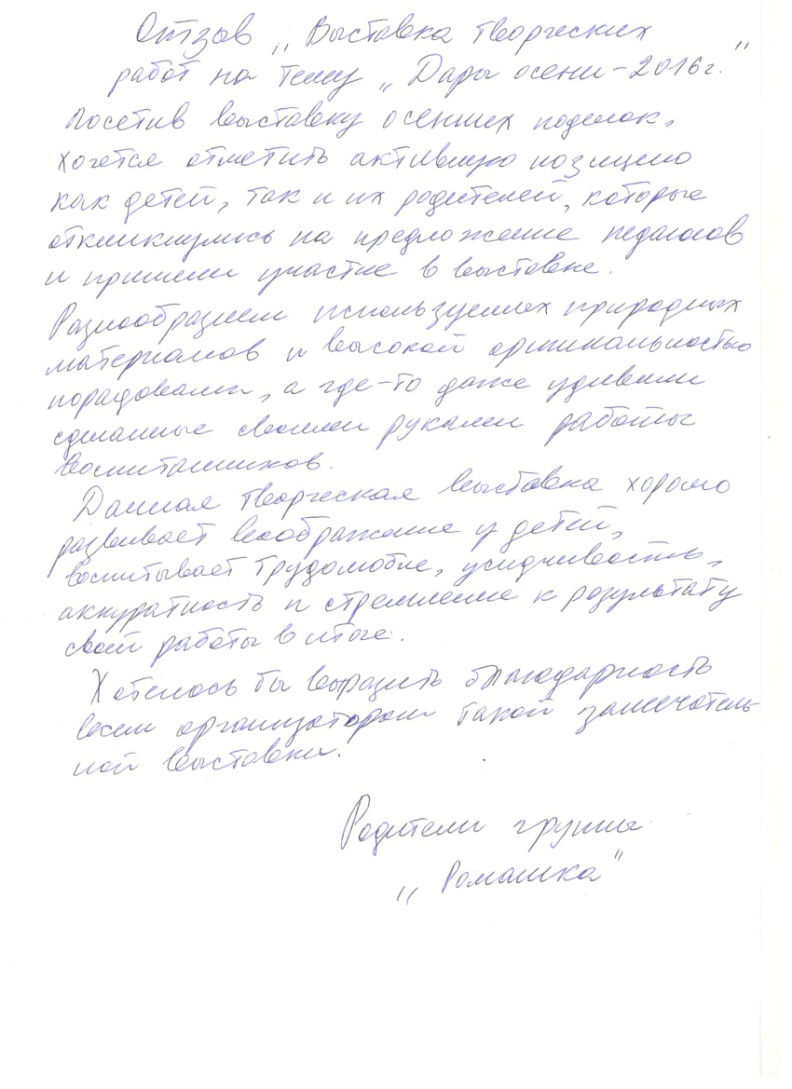 Отзыв „Выставка творческих
работ на тему „Дары осени-2016г."
Посетив выставку осенних поделок,
хочется отметить активную позицию
как детей, так и их родителей, которые
откликнулись на предложение педагогов
и приняли участие в выставке.
Разнообразием используемых природных
материалов и высокой оригинальностью
порадовали, а где-то даже удивили
сделанные своими руками работы
воспитанников.
Данная творческая выставка хорошо
развивает воображение у детей,
воспитывает трудолюбие, усидчивость,
аккуратность и стремление к результату
свой работы в итоге.
Хотелось бы выразить благодарность
всем организаторам такой замечатель-
ной выставки.
Родители группы
„Ромашка"